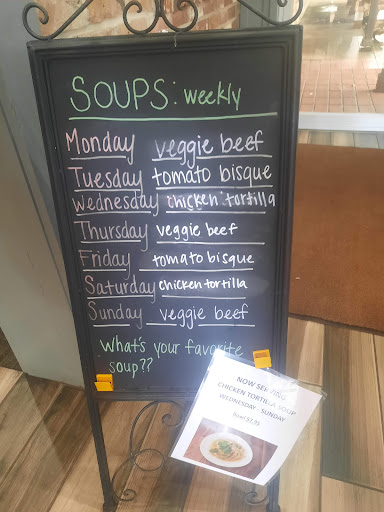 SOUPS: weekly
Monday veggie beef
Tuesday tomato bisque
Wednesday chicken tortilla
Thursday veggie beef
Friday tomato bisque
Saturday chicken tortilla
Sunday veggie beef
What's your favorite
soup??
NOW SERVING
CHICKEN TORTILLA SOUP
WEDNESDAY - SUNDAY
Bowl